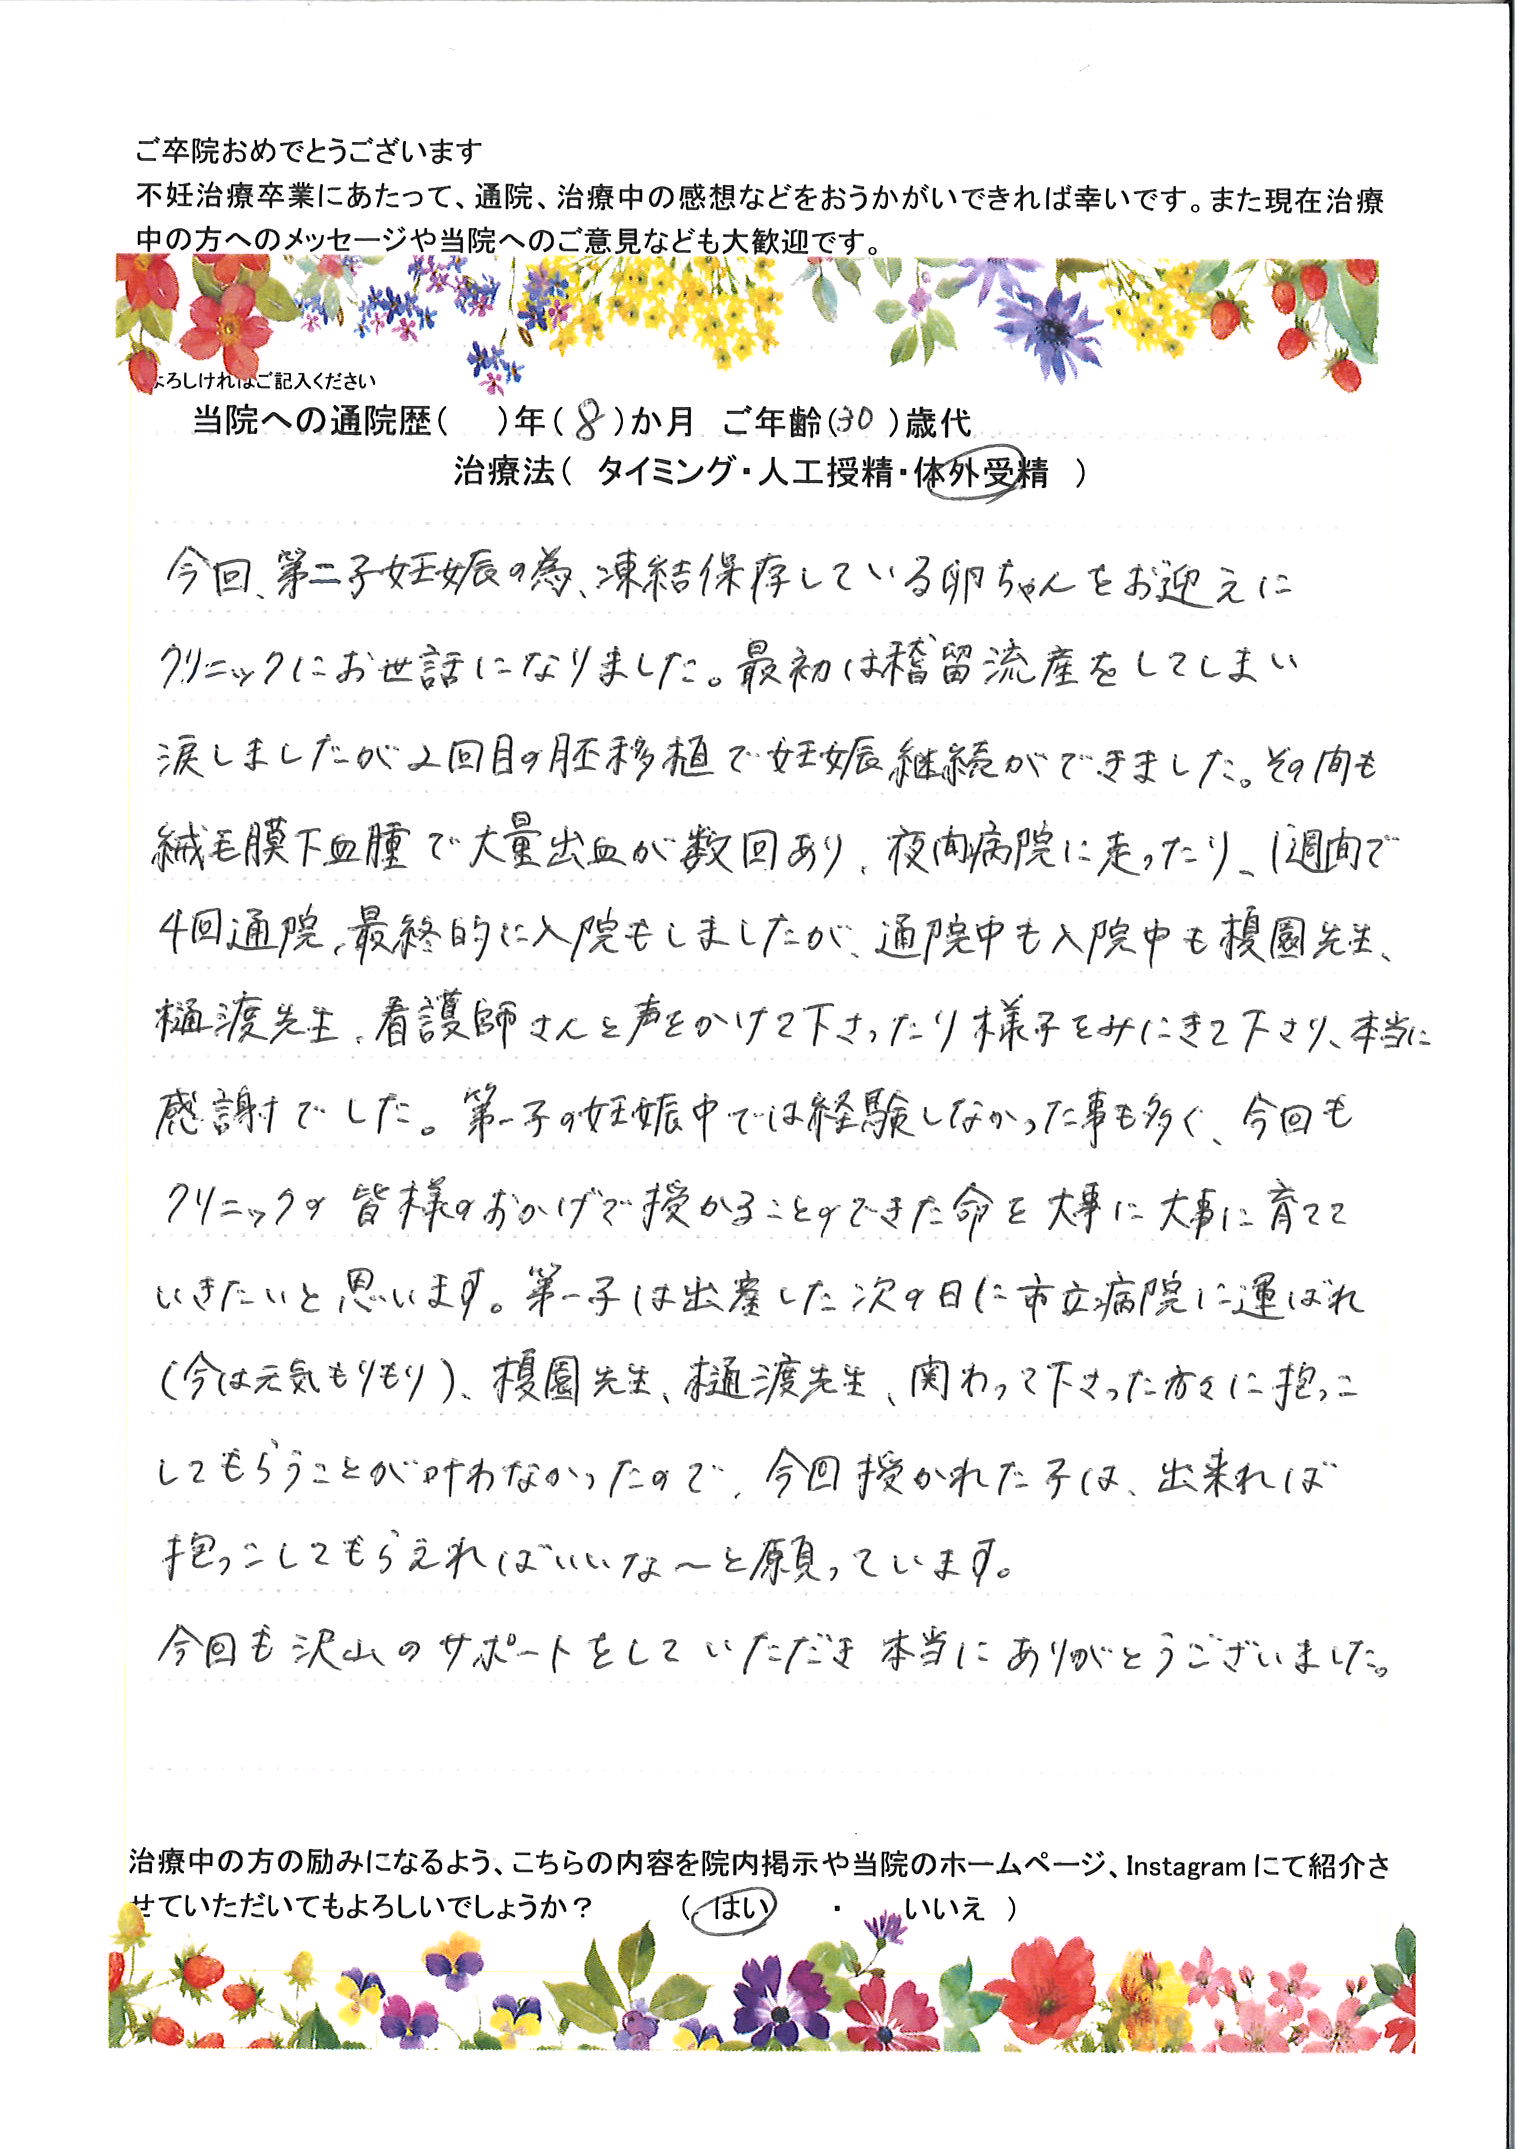 ご卒院おめでとうございます
不妊治療卒業にあたって、通院、治療中の感想などをおうかがいできれば幸いです。また現在治療
中の方へのメッセージや当院へのご意見なども大歓迎です。
よろしければご記入ください
当院への通院歴(　)年(8)か月 ご年齢(30)歳代
治療法( タイミング・人工授精・体外受精 )
今回、第二子妊娠の為、凍結保存している卵ちゃんをお迎えに
クリニックにお世話になりました。最初は稽留流産をしてしまい
涙しましたが2回目の胚移植で妊娠継続ができました。その間も
絨毛膜下血腫で大量出血が数回あり、夜間病院に走ったり、1週間で
4回通院、最終的に入院もしましたが、通院中も入院中も榎園先生、
樋渡先生、看護師さんと声をかけて下さったり様子をみにきて下さり、本当に
感謝でした。第一子の妊娠中では経験しなかった事も多く、今回も
クリニックの皆様のおかげで授かることのできた命を大事に大事に育てて
いきたいと思います。第一子は出産した次の日に市立病院に運ばれ
(今は元気もりもり)、榎園先生、樋渡先生、関わって下さった方々に抱っこ
してもらうことが叶わなかったので、今回授かれた子は、出来れば
抱っこしてもらえればいいな〜と願っています。
今回も沢山のサポートをしていただき本当にありがとうございました。
治療中の方の励みになるよう、こちらの内容を院内掲示や当院のホームページ、Instagramにて紹介さ
せていただいてもよろしいでしょうか？ ( はい ・ いいえ )